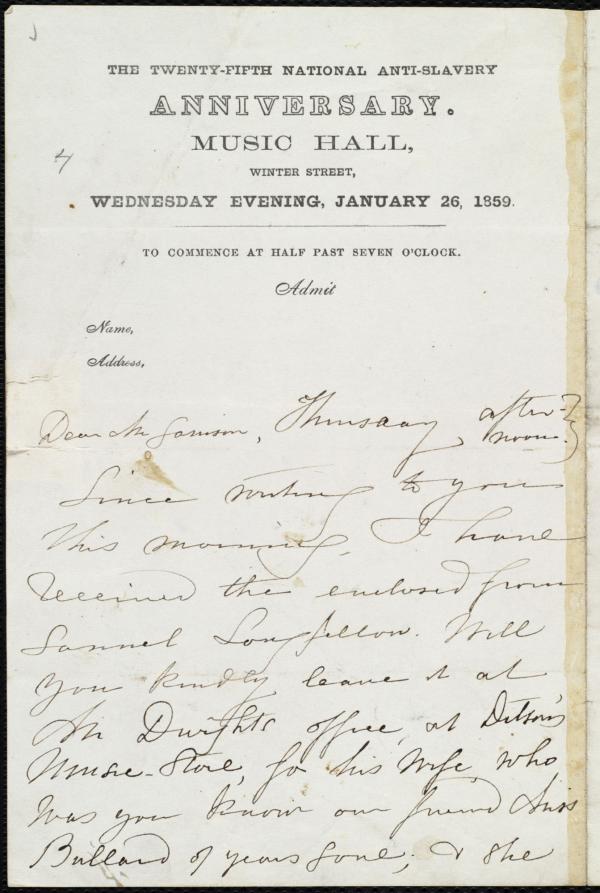 THE TWENTY-FIFTH NATIONAL ANTI-SLAVERY
ANNIVERSARY.
MUSIC HALL,
WINTER STREET,
WEDNESDAY EVENING, JANUARY 26, 1859.
TO COMMENCE AT HALF PAST SEVEN O'CLOCK.
Admit
Name,
Address,
Dear Mr Garrison, Thursday, after-
noon.
Since writing to you
this morning, I have
received the enclosed from
Samuel Longfellow. Will
you kindly leave it at
Mr Dwight's office, at Ditson's
Music-Store, for his wife who
was you know our friend Miss
Bullard of years gone; & she